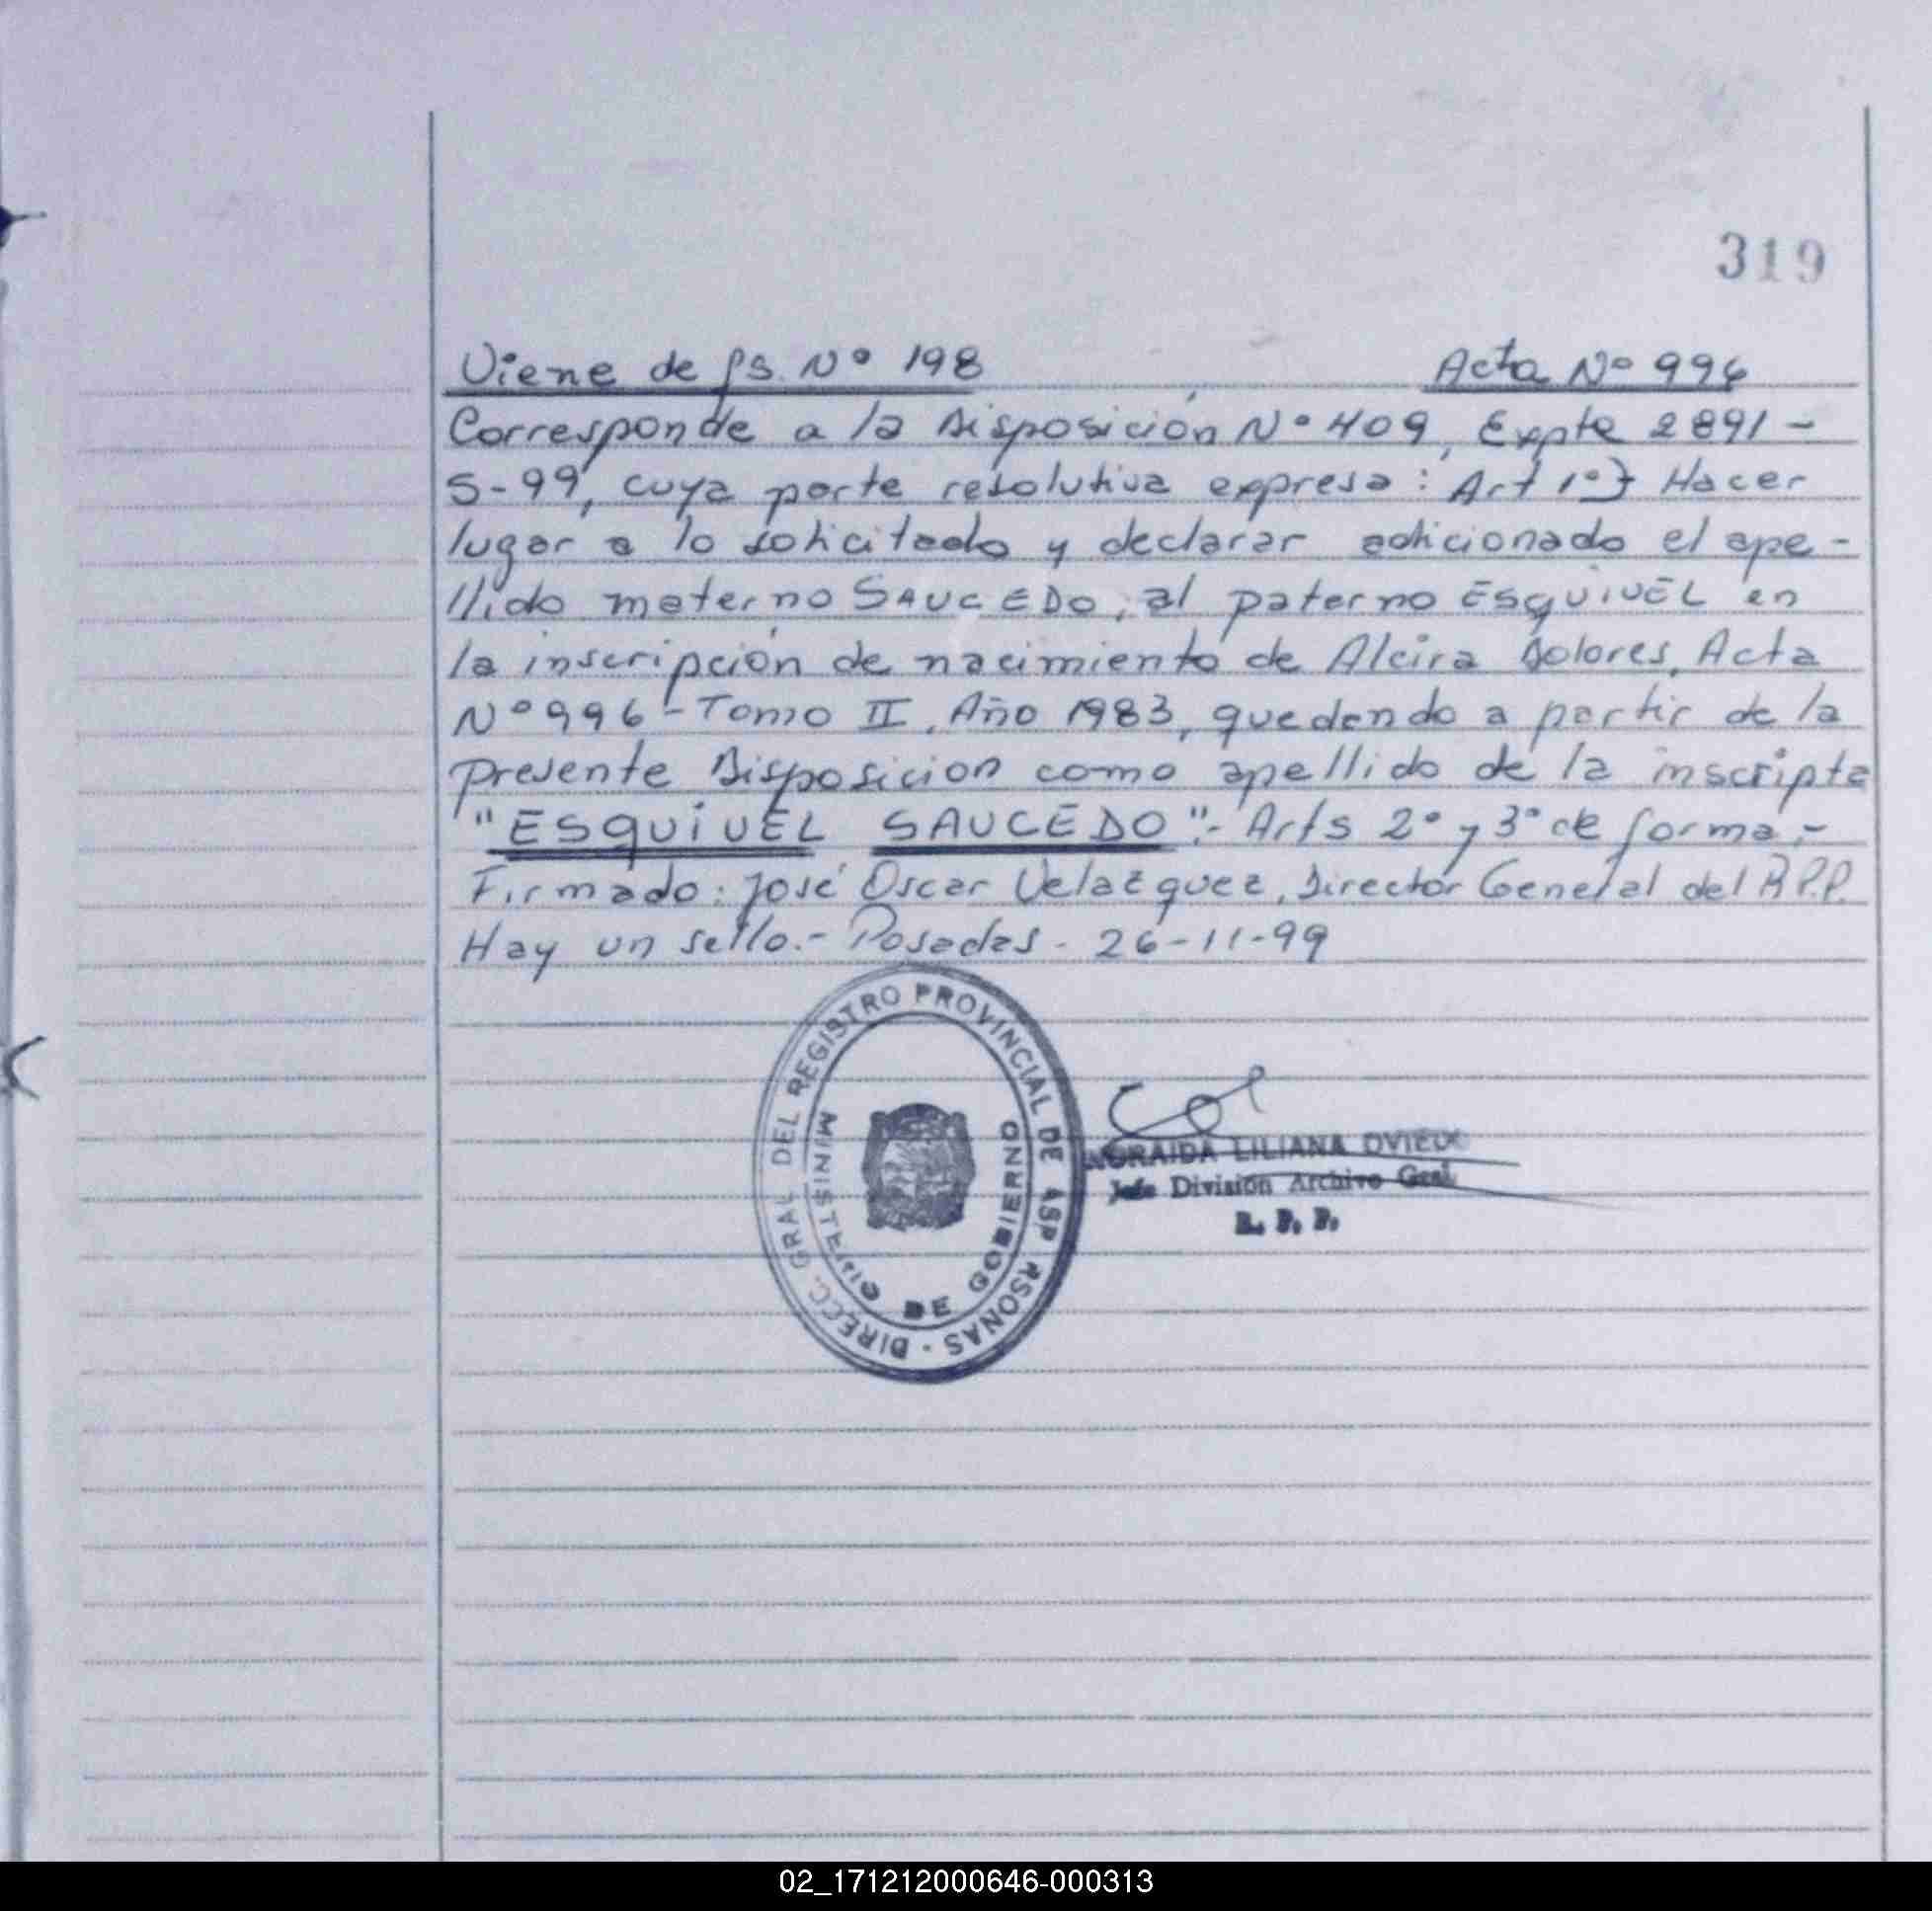 319
Viene de fs. Nº 198 Acta Nº 996
Corresponde a la Disposición Nº 409, Expte 2891-
S-99, cuya parte resolutiva expresa: Art 1º} Hacer
lugar a lo solicitado y declarar adicionado el ape-
llido materno SAUCEDO, al paterno ESQUIVEL en
la inscripción de nacimiento de Alcira Dolores, Acta
Nº 996 - Tomo II, Año 1983, quedando a partir de la
presente Disposicion como apellido de la inscripta
"ESQUIVEL SAUCEDO".- Arts 2º y 3º de forma.-
Firmado: José Oscar Velazquez, Director General del R.P.P.
Hay un sello.- Posadas - 26-11-99
DIRECC. GRAL DEL REGISTRO PROVINCIAL DE ASP RSONAS -
MINISTERIO DE GOBIERNO
LILIANA OVIEDO
Jefe División Archivo Gral
R. P. P.
02_171212000646-000313